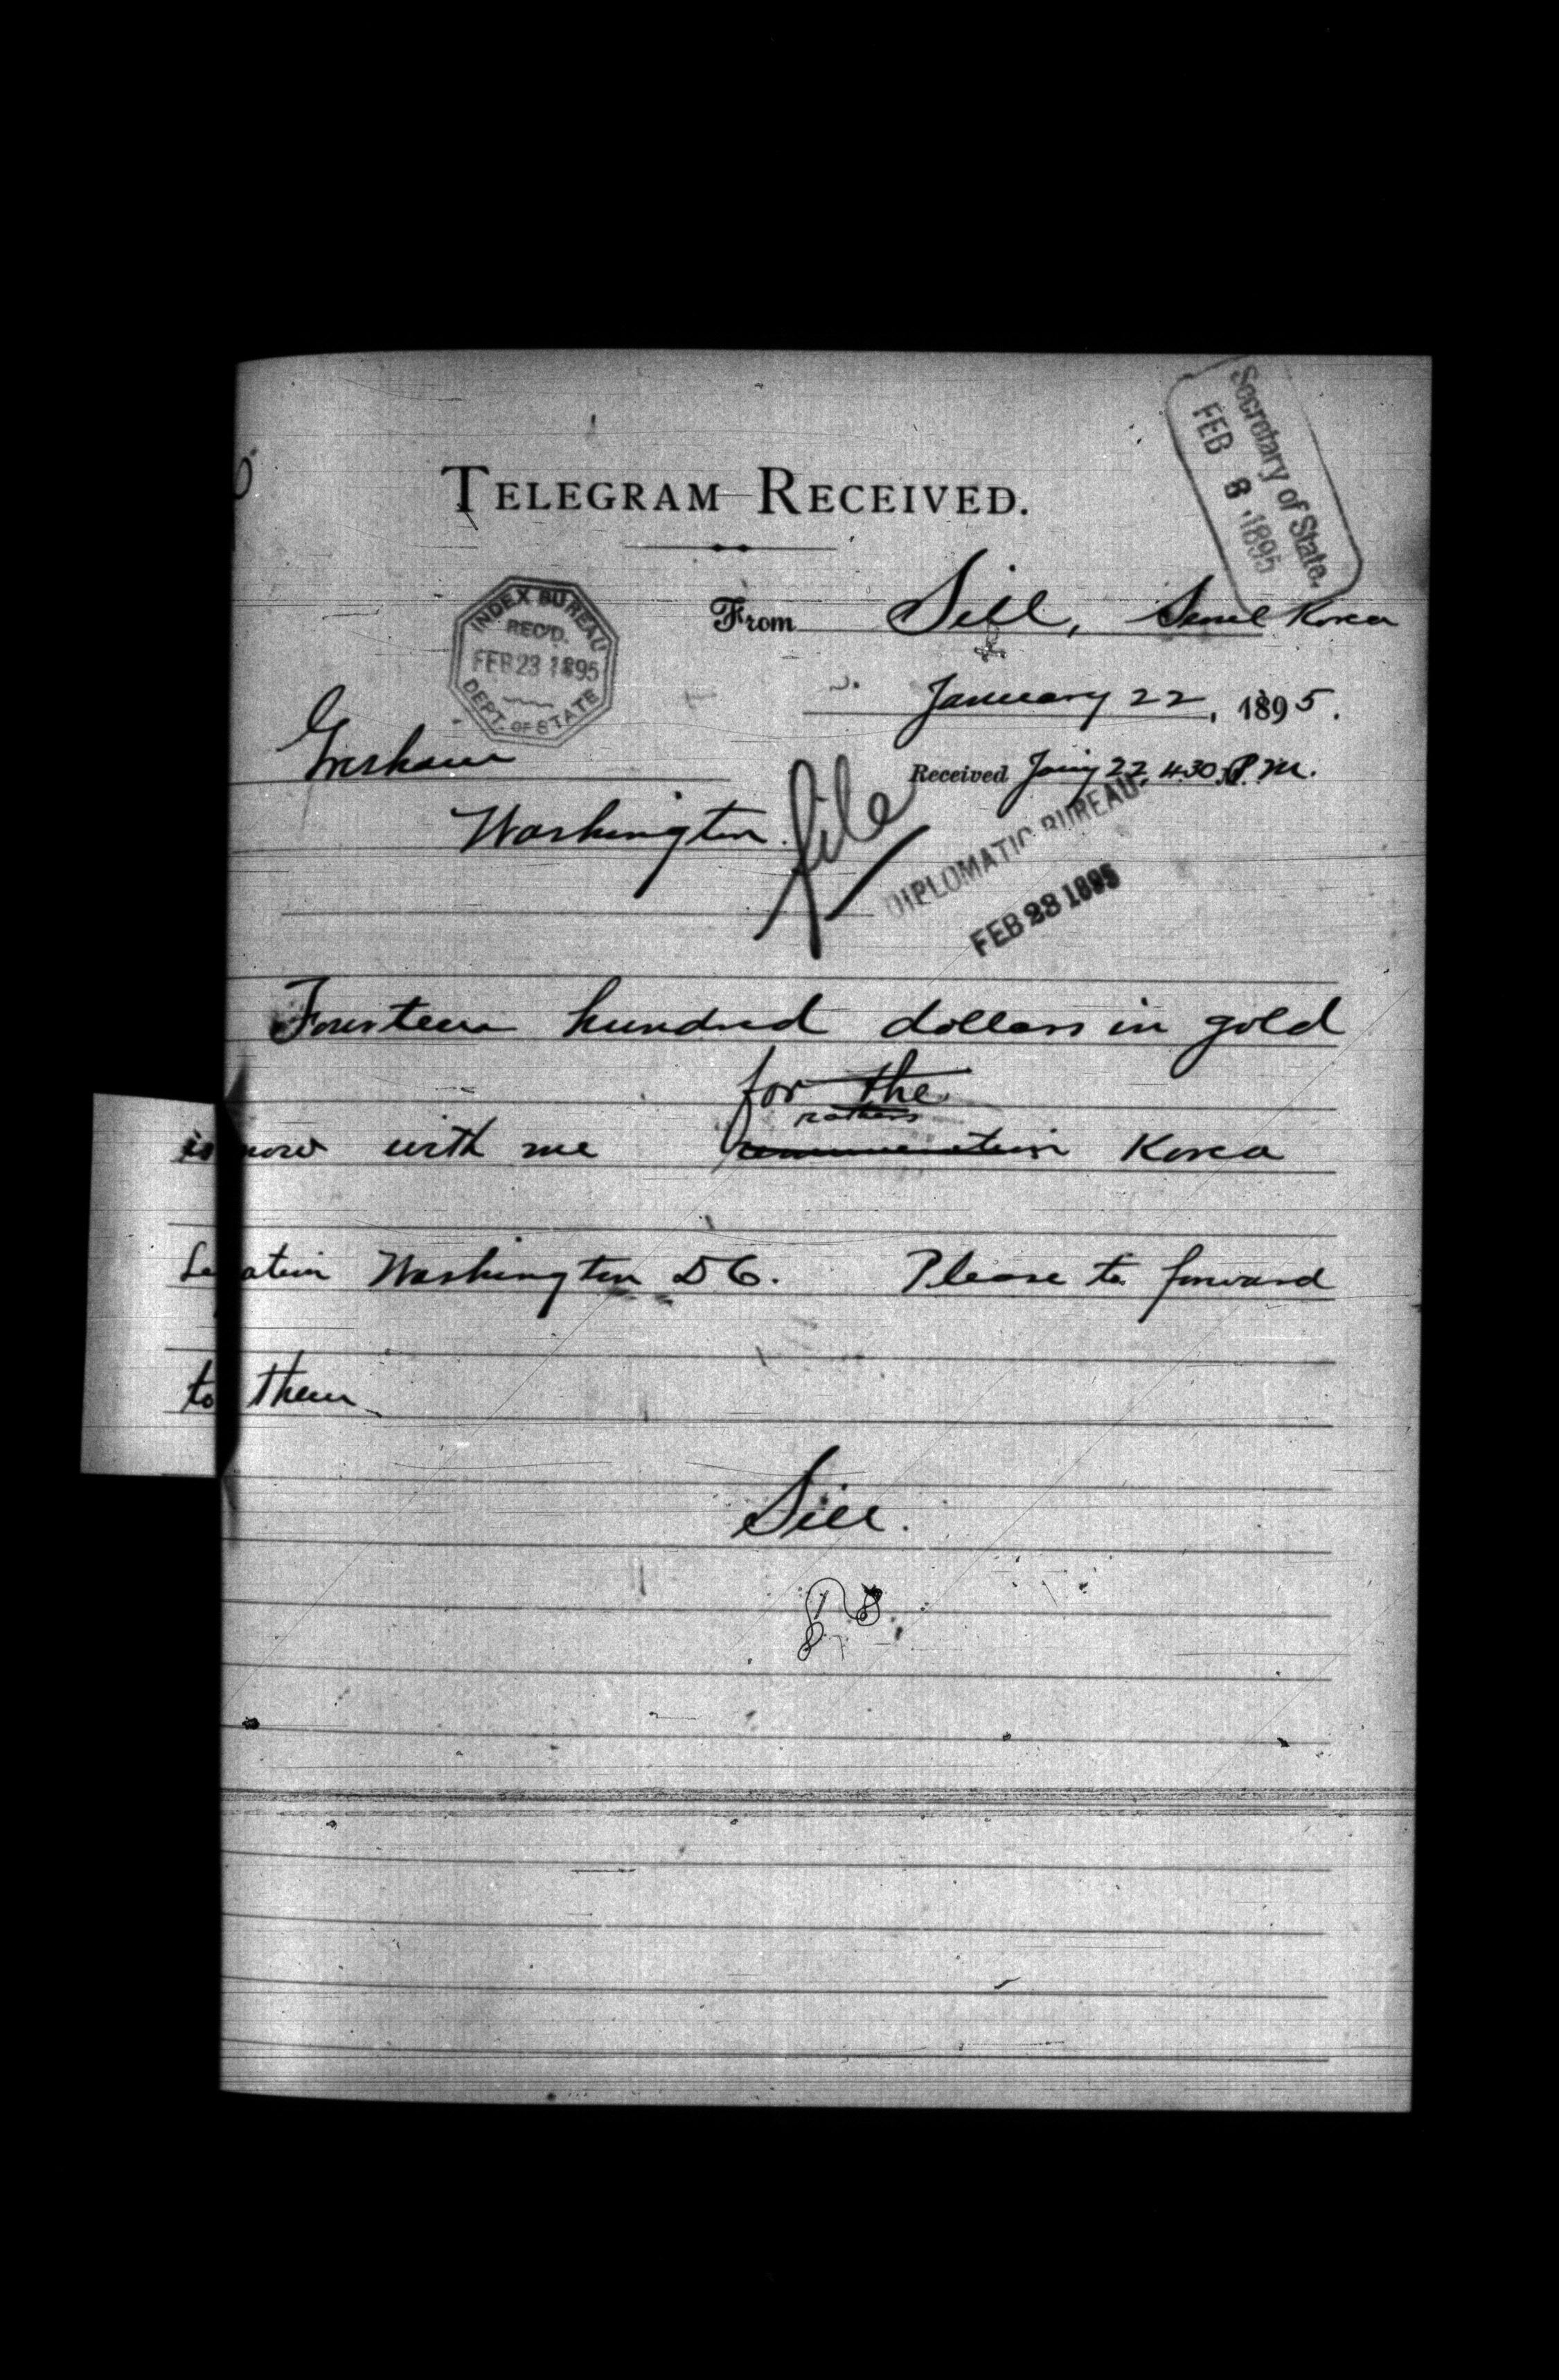 Secretary of State.
FEB 8 1895
TELEGRAM RECEIVED.
From Sill, Seoul Korea
INDEX BUREAU
REC'D.
FEB 23 1895
DEPT. OF STATE
January 22, 1895.
Gresham
Received Jany 22, 4.30 P.M.
Washington.
file
DIPLOMATIC BUREAU
FEB 28 1895
Fourteen hundred dollars in gold
for the
is now with me Korea
Legation Washington DC. Please to forward
to them
Sill.